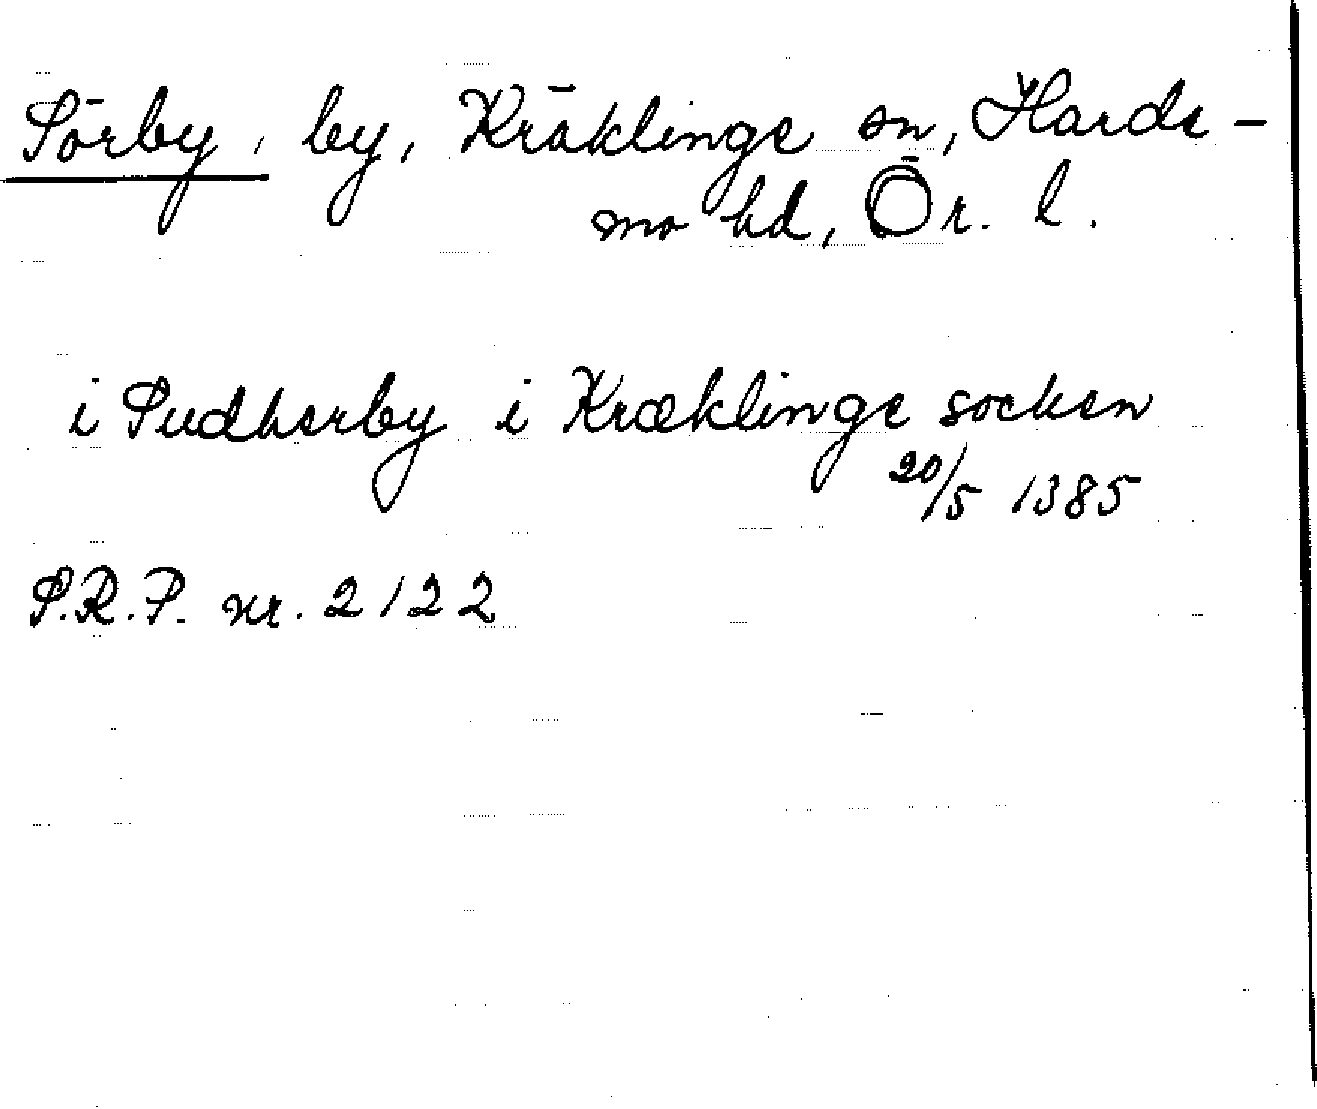 Sörby, by, Kräklinge sn, Harde-
mo hd, Ör. l.
i Sudherby i Kræklinge socken
20/5 1385
S.R.P. nr. 2122